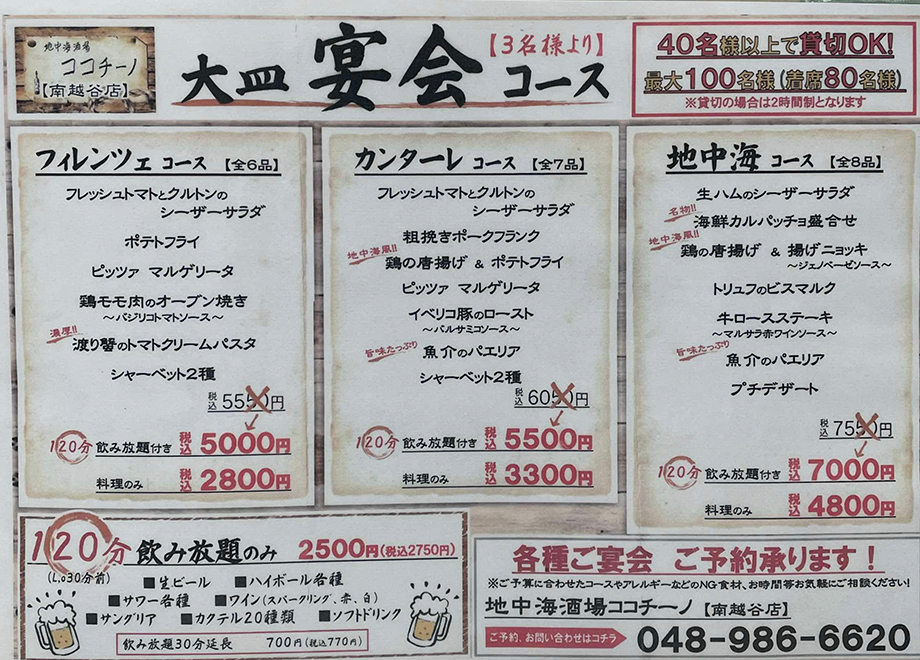 地中海酒場
ココチーノ
【南越谷店】
大皿 宴会 コース
【3名様より】
40名様以上で貸切OK!
最大100名様(着席80名様)
※貸切の場合は2時間制となります
フィレンツェ コース 【全6品】
フレッシュトマトとクルトンの
シーザーサラダ
ポテトフライ
ピッツァ マルゲリータ
鶏モモ肉のオーブン焼き
～バジリコトマトソース～
濃厚!!
渡り蟹のトマトクリームパスタ
シャーベット2種
税込 5550円
120分 飲み放題付き 税込 5000円
料理のみ 税込 2800円
カンターレ コース 【全7品】
フレッシュトマトとクルトンの
シーザーサラダ
粗挽きポークフランク
地中海風!!
鶏の唐揚げ & ポテトフライ
ピッツァ マルゲリータ
イベリコ豚のロースト
～バルサミコソース～
旨味たっぷり
魚介のパエリア
シャーベット2種
税込 6050円
120分 飲み放題付き 税込 5500円
料理のみ 税込 3300円
地中海 コース 【全8品】
生ハムのシーザーサラダ
名物!!
海鮮カルパッチョ盛合せ
地中海風!!
鶏の唐揚げ & 揚げニョッキ
～ジェノベーゼソース～
トリュフのビスマルク
牛ロースステーキ
～マルサラ赤ワインソース～
旨味たっぷり
魚介のパエリア
プチデザート
税込 7550円
120分 飲み放題付き 税込 7000円
料理のみ 税込 4800円
120分 飲み放題のみ 2500円(税込2750円)
(L.o30分前)
■生ビール ■ハイボール各種
■サワー各種 ■ワイン(スパークリング、赤、白)
■サングリア ■カクテル20種類 ■ソフトドリンク
飲み放題30分延長 700円(税込770円)
各種ご宴会 ご予約承ります!
※ご予算に合わせたコースやアレルギーなどのNG食材、お時間等お気軽にご相談ください!
地中海酒場ココチーノ【南越谷店】
ご予約、お問い合わせはコチラ 048-986-6620